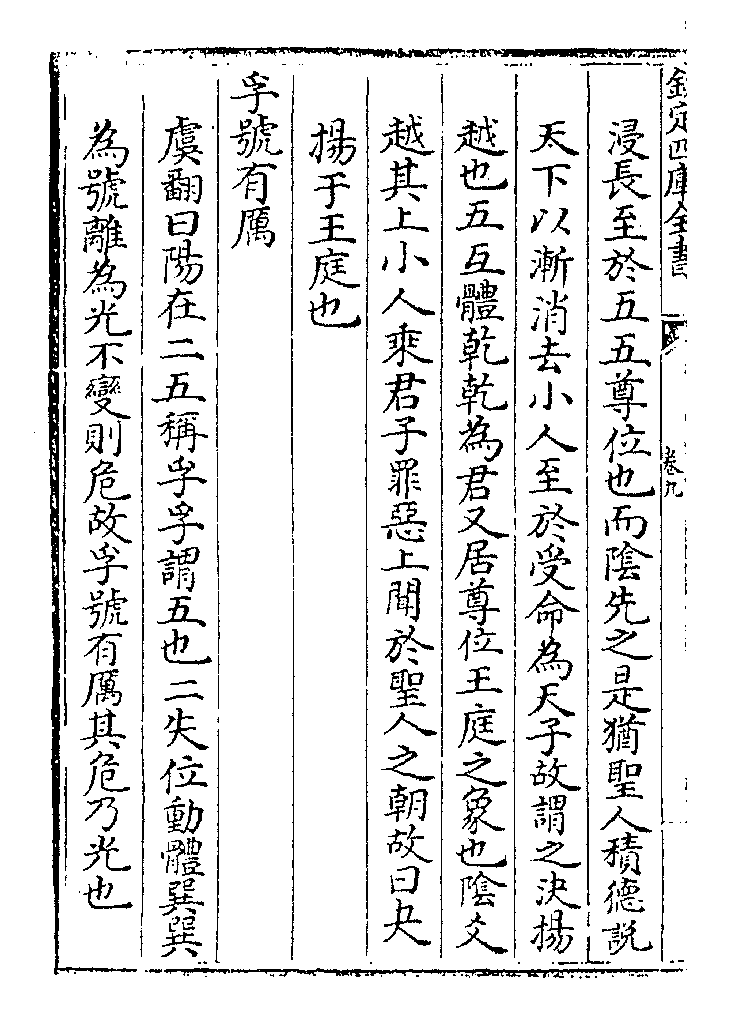 欽定四庫全書
卷九
浸長至於五五尊位也而陰先之是猶聖人積德説
天下以漸消去小人至於受命為天子故謂之決揚
越也五互體乾乾為君又居尊位王庭之象也陰爻
越其上小人乘君子罪惡上聞於聖人之朝故曰夬
揚于王庭也
孚號有厲
虞翻曰陽在二五稱孚孚謂五也二失位動體巽巽
為號離為光不變則危故孚號有厲其危乃光也